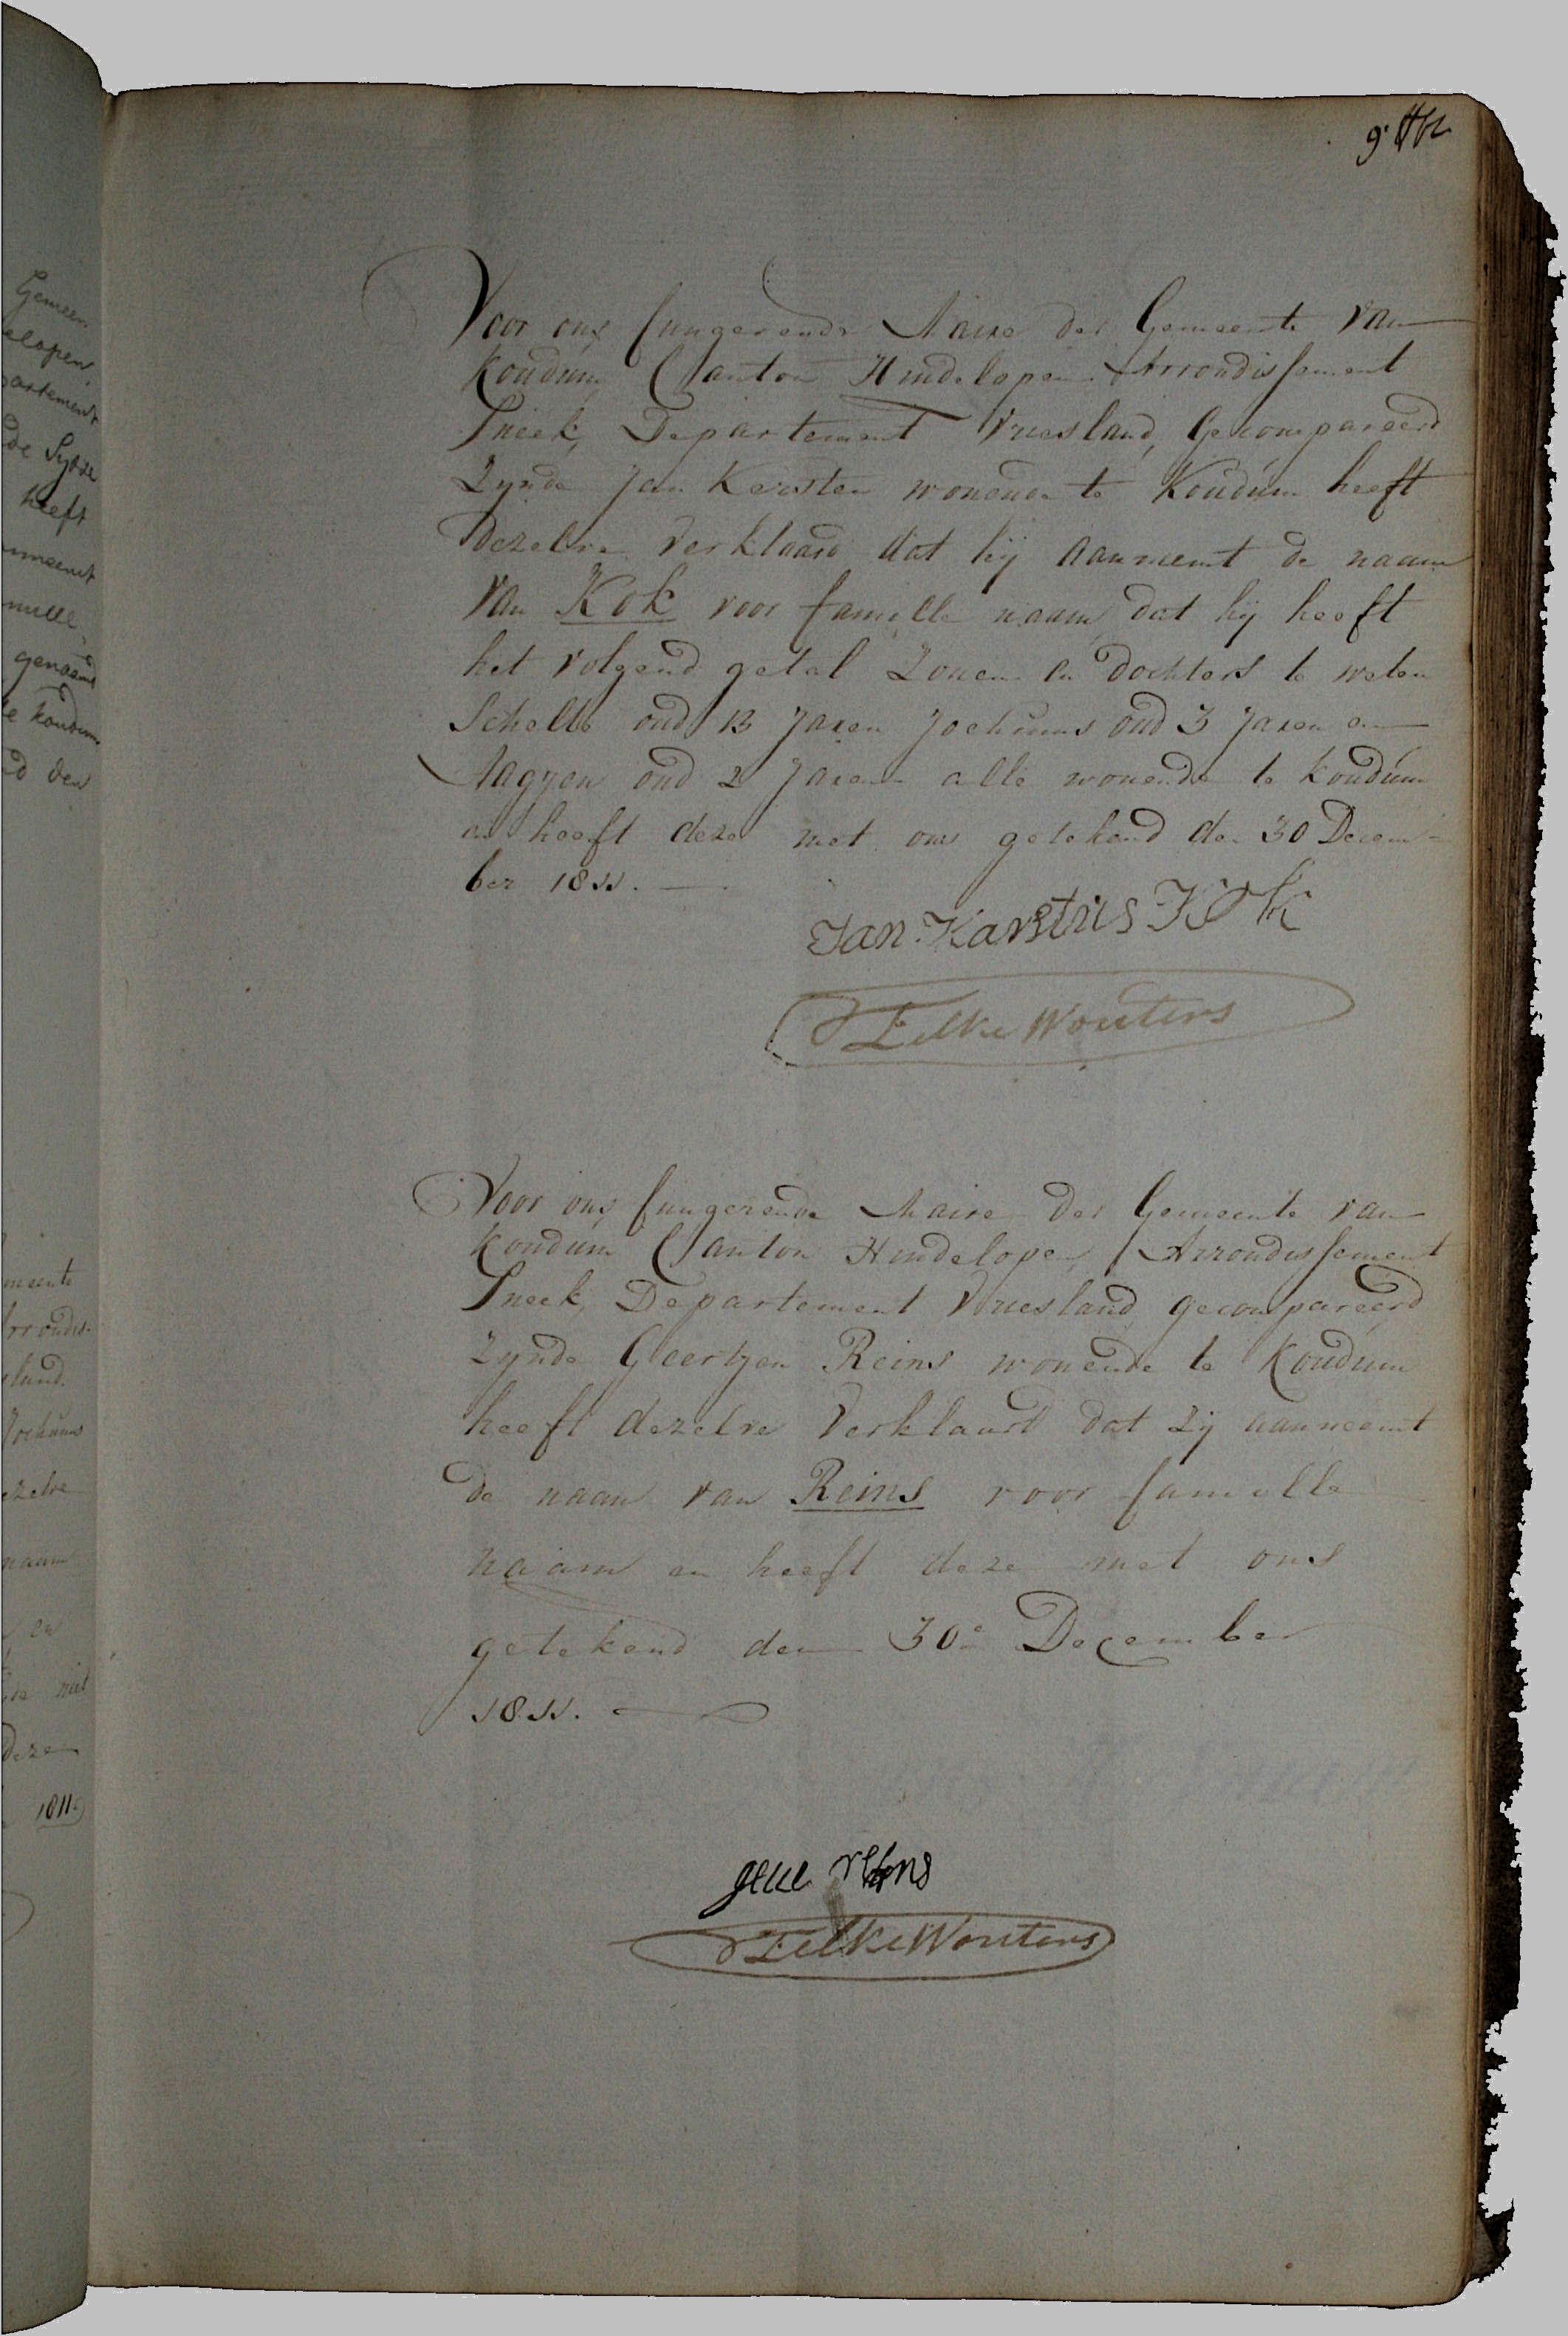 Voor ons fungerende Maire der Gemeente van
Koudúm Canton Hindelopen Arrondissement
Sneek, Departement Vriesland, Gecompareerd
Zynde Jan Kersten wonende te Koudúm heeft
dezelve verklaard dat hij aanneemt de naam
van Kok voor famille naam, dat hij heeft
het volgend getal Zonen en dochters te weten
Schelte oud 13 Jaren Jochums oud 3 Jaren en
Aagjen oud 2 Jaren alle wonende te koudúm
en heeft deze met ons getekend den 30 Decem-
ber 1811.
Jan Karstús Kok
Eelke Wouters
Voor ons fungerende Maire der Gemeente van
Koudum Canton Hindelopen, Arrondissement
Sneek, Departement Vriesland gecompareerd
Zynde Geertjen Reins wonende te Koudúm
heeft dezelve verklaard dat zij aanneemt
de naam van Reins voor famille
naam en heeft deze met ons
getekend den 30e December
1811.
reins
Eelke Wouters
Gemeen
elopen,
partement
de Sytze
heeft
nneemt
mille,
genaamd
te koudum
d den
meente
rrondis-
sland.
Jochums
ezelve
naam
en
niet
deze
1811.